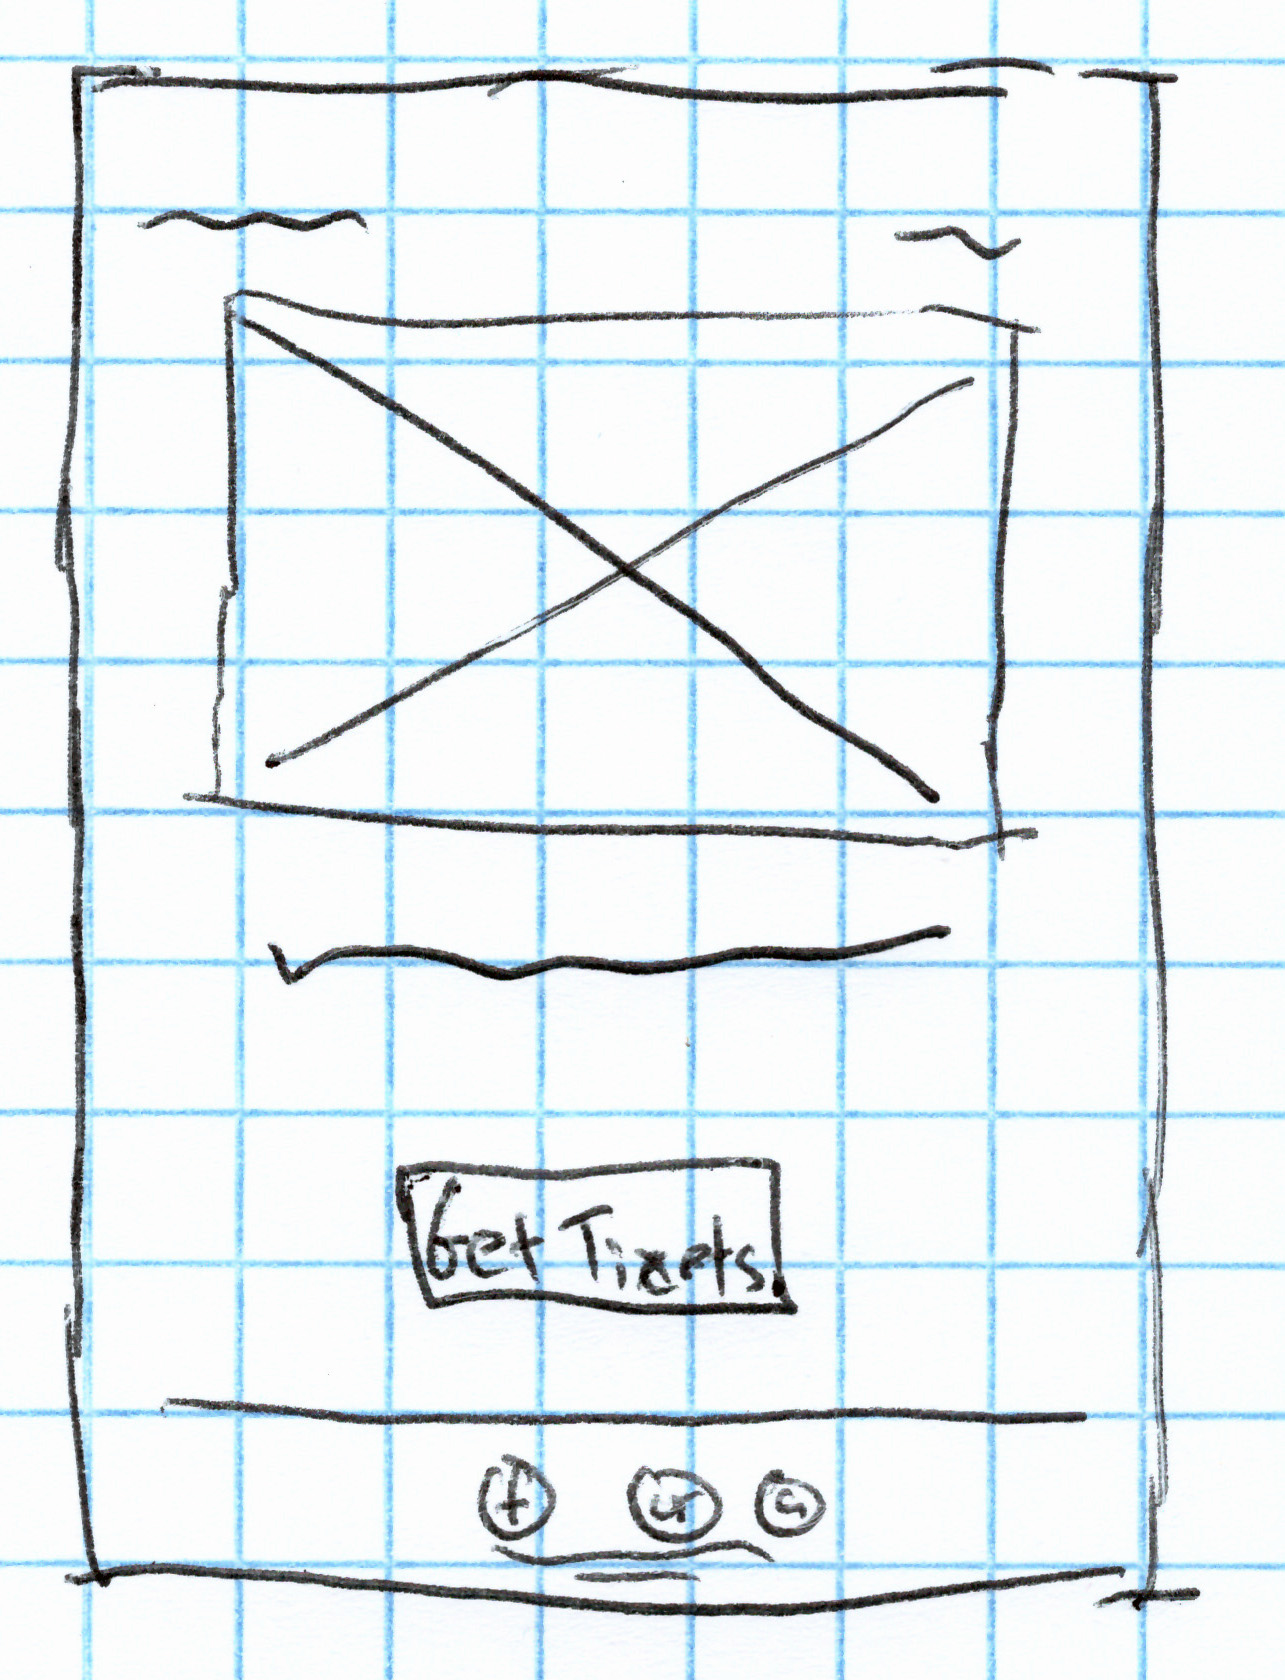 Get Tixets
f